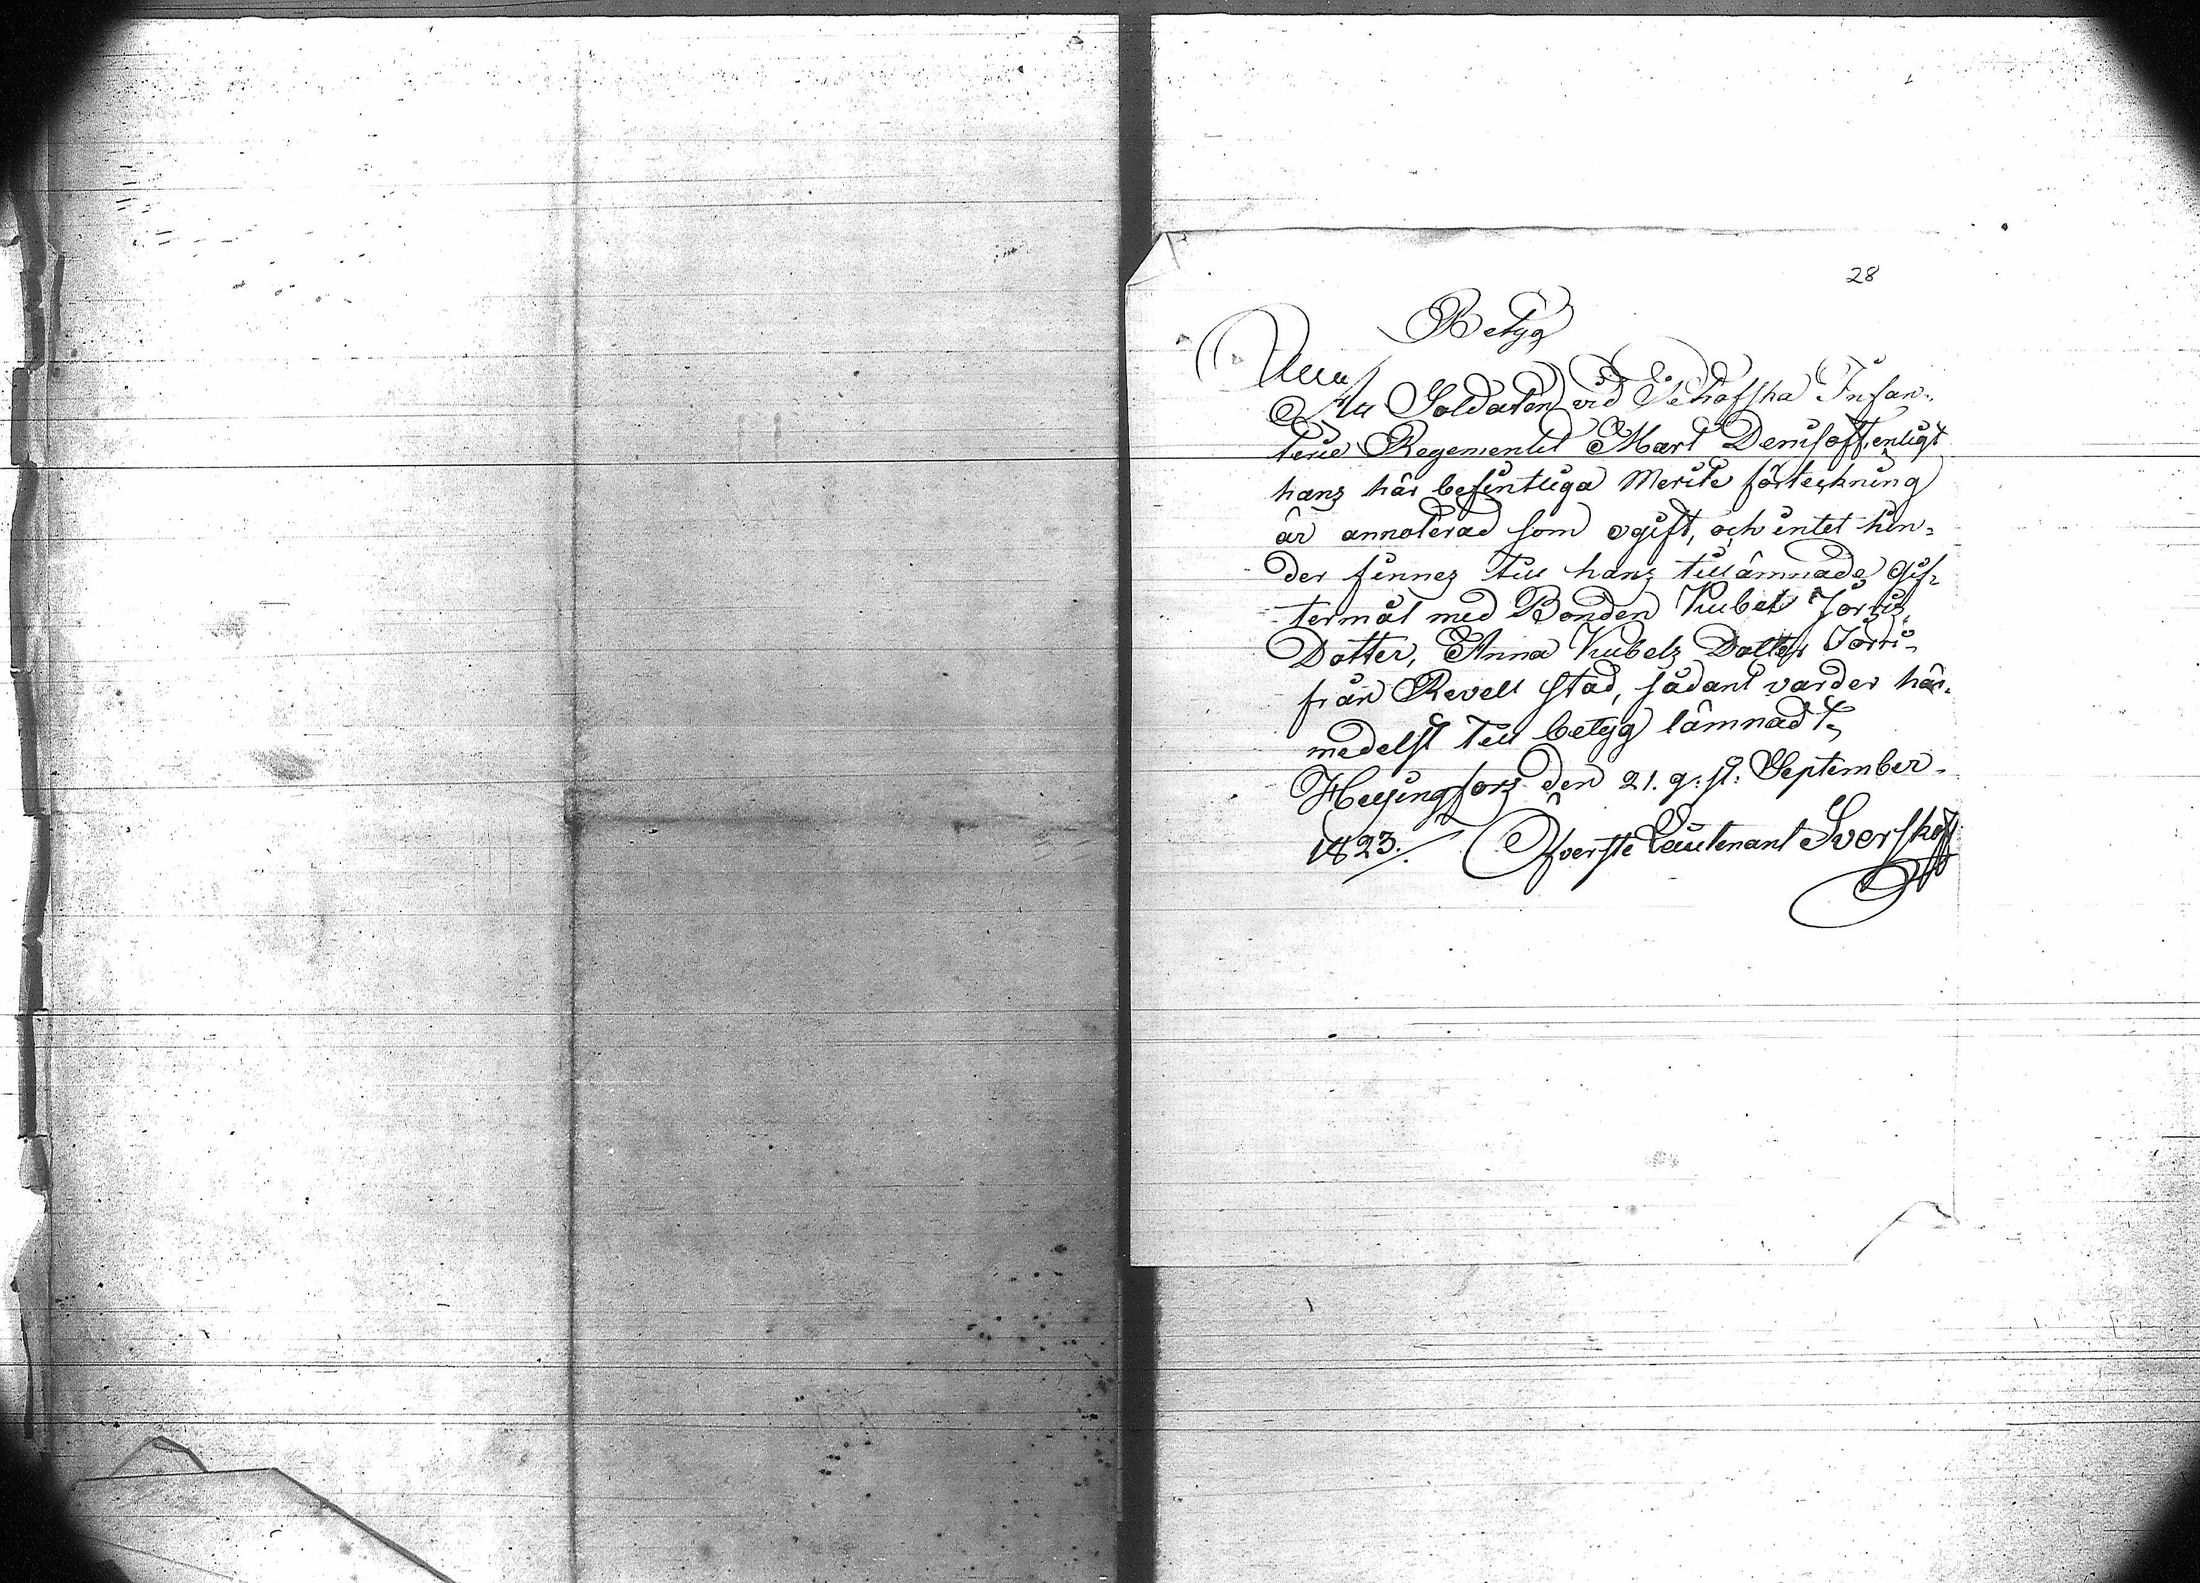 28
Betyg
Att Soldaten vid Infan-
terie Regementet Mart Denisoff, enligt
hans här befintliga Merite förteckning
är annoterad som ogift, och intet hin-
der finnes till hans tillämnade Gif-
termål med Bonden Kubel Jörris
Dotter, Anna Kubels Dotter Jörri
från Revell stad, sådant varder här-
medelst till betyg lämnadt,
Helsingfors den 21. g: st: September
1823. Öfverste Lieutenant Sverskoff